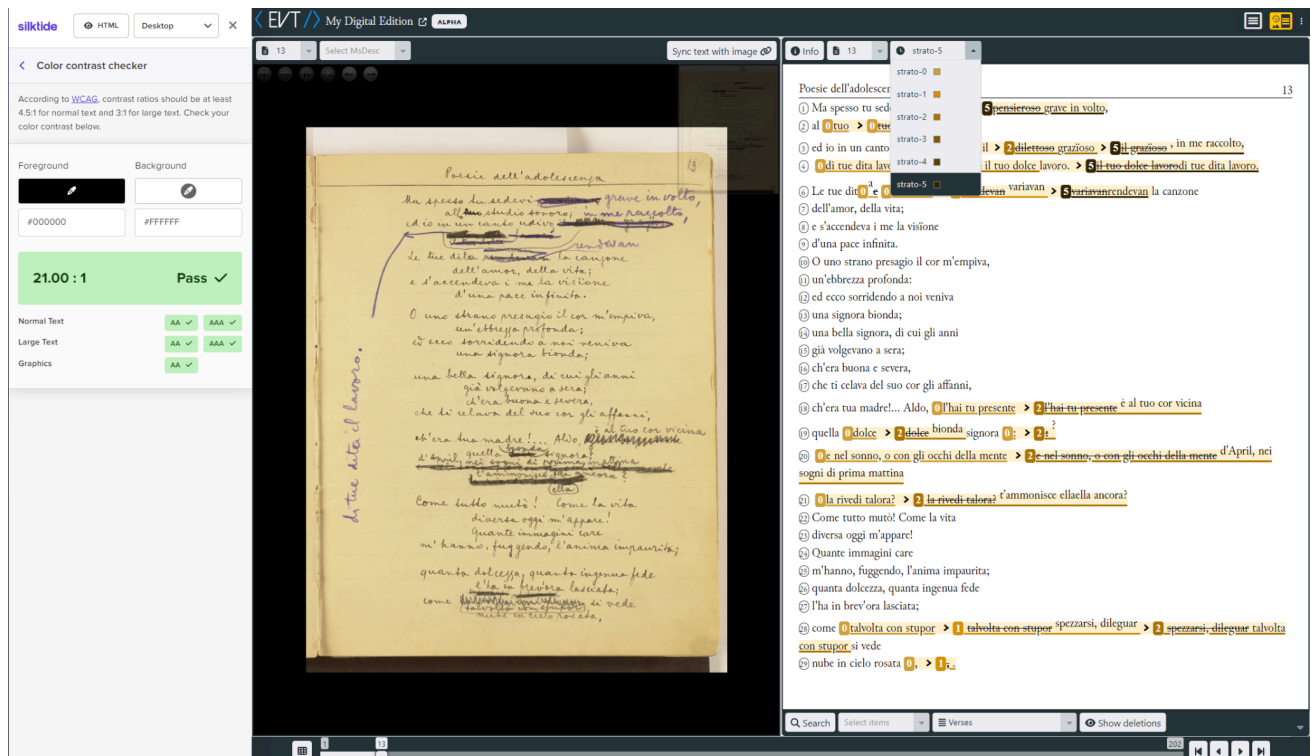 silktide
HTML
Desktop
Color contrast checker
According to WCAG, contrast ratios should be at least
4.5:1 for normal text and 3:1 for large text. Check your
color contrast below.
Foreground
Background
#000000
#FFFFFF
21.00 : 1
Pass
Normal Text
AA
AAA
Large Text
AA
AAA
Graphics
AA
EVT
My Digital Edition
ALPHA
13
Select MsDesc
Sync text with image
13
Poesie dell'adolescenza
Ma spesso tu sedevi grave in volto,
studio sonoro; in me raccolto,
ed io in un canto udivo
rendevan
Le tue dita la canzone
dell'amor, della vita;
e s'accendeva i me la visïone
d'una pace infinita.
O uno strano presagio il cor m'empiva,
un'ebbrezza profonda;
ed ecco sorridendo a noi veniva
una signora bionda;
una bella signora, di cui gli anni
già volgevano a sera;
ch'era buona e severa,
che ti celava del suo cor gli affanni,
è al tuo cor vicina
ch'era tua madre!... Aldo,
bionda
quella signora?
d'April, nei sogni di prima mattina
t'ammonisce ella ancora?
(ella)
Come tutto mutò! Come la vita
diversa oggi m'appare!
Quante immagini care
m'hanno, fuggendo, l'anima impaurita;
quanta dolcezza, quanta ingenua fede
l'ha in brev'ora lasciata;
come si vede
talvolta con stupor
nube in cielo rosata,
di tue dita il lavoro.
Info
13
strato-5
strato-0
strato-1
strato-2
strato-3
strato-4
strato-5
Poesie dell'adolescen
13
1 Ma spesso tu sed 5 pensieroso grave in volto,
2 al 0 tuo > 0 tuo
3 ed io in un canto il > 2 dilettoso grazïoso > 5 il grazïoso , in me raccolto,
4 0 di tue dita lavo il tuo dolce lavoro. > 5 il tuo dolce lavorodi tue dita lavoro.
6 Le tue dit 0 a e 0 devan variavan > 5 variavanrendevan la canzone
7 dell'amor, della vita;
8 e s'accendeva i me la visïone
9 d'una pace infinita.
10 O uno strano presagio il cor m'empiva,
11 un'ebbrezza profonda:
12 ed ecco sorridendo a noi veniva
13 una signora bionda;
14 una bella signora, di cui gli anni
15 già volgevano a sera;
16 ch'era buona e severa,
17 che ti celava del suo cor gli affanni,
18 ch'era tua madre!... Aldo, 0 l'hai tu presente > 2 l'hai tu presente è al tuo cor vicina
19 quella 0 dolce > 2 dolce bionda signora 0 ; > 2 ; ?
20 0 e nel sonno, o con gli occhi della mente > 2 e nel sonno, o con gli occhi della mente d'April, nei
sogni di prima mattina
21 0 la rivedi talora? > 2 la rivedi talora? t'ammonisce ellaella ancora?
22 Come tutto mutò! Come la vita
23 diversa oggi m'appare!
24 Quante immagini care
25 m'hanno, fuggendo, l'anima impaurita;
26 quanta dolcezza, quanta ingenua fede
27 l'ha in brev'ora lasciata;
28 come 0 talvolta con stupor > 1 talvolta con stupor spezzarsi, dileguar > 2 spezzarsi, dileguar talvolta
con stupor si vede
29 nube in cielo rosata 0 , > 1 , .
Search
Select items
Verses
Show deletions
1
13
202